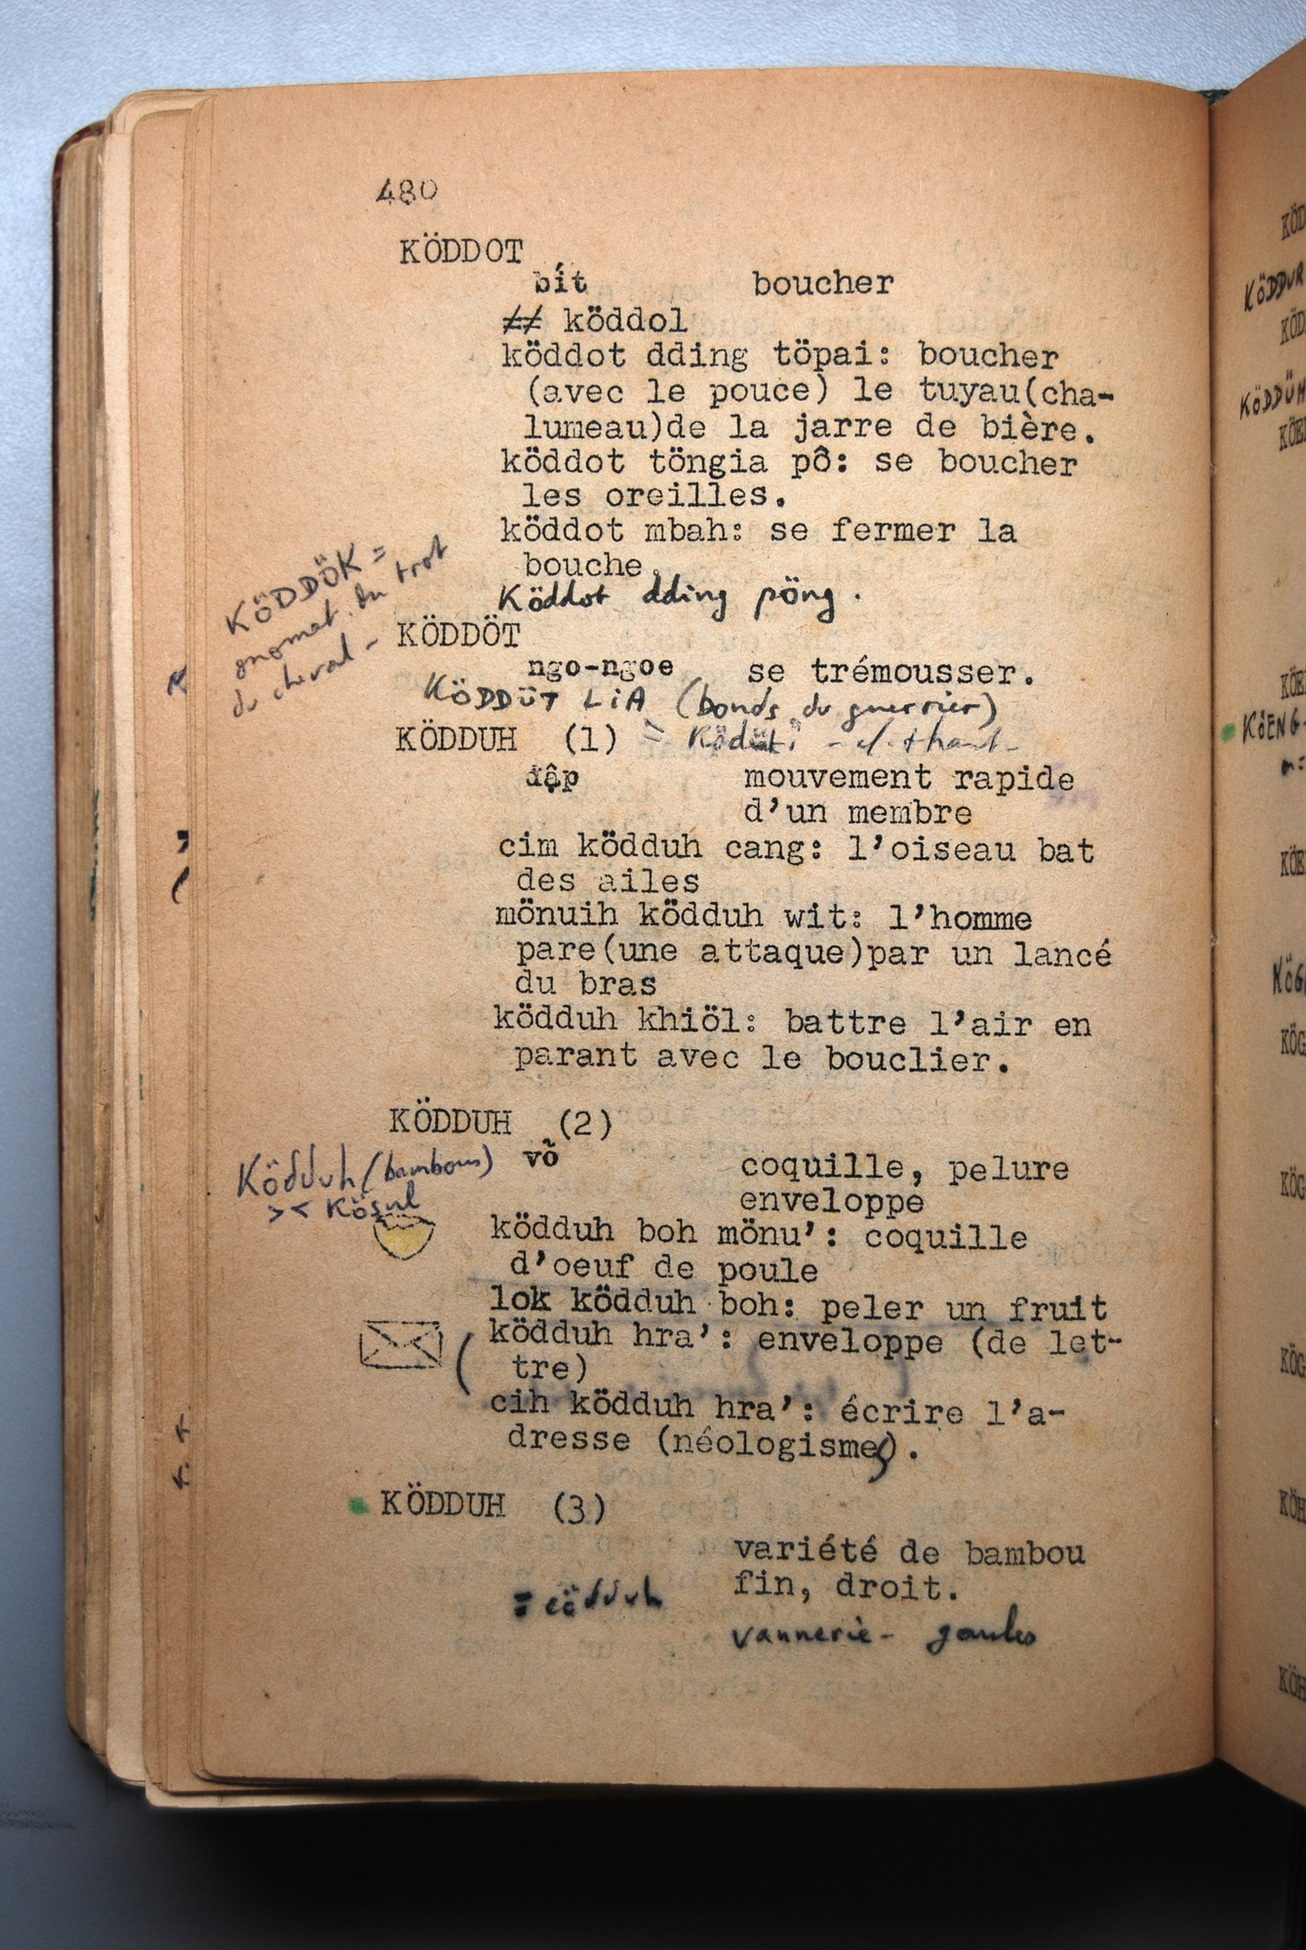 480
KÖDDOT
bít boucher
≠≠ köddol
köddot dding töpai: boucher
(avec le pouce) le tuyau(cha-
lumeau)de la jarre de bière.
köddot töngia pô: se boucher
les oreilles.
köddot mbah: se fermer la
bouche.
Köddot dding pöng.
KÖDDÖK =
onomat. du trot
du cheval -
KÖDDÖT
ngo-ngoe se trémousser.
KÖDDÖT LIA (bonds du guerrier)
KÖDDUH (1)
đập mouvement rapide
d'un membre
cim ködduh cang: l'oiseau bat
des ailes
mönuih ködduh wit: l'homme
pare(une attaque)par un lancé
du bras
ködduh khiöl: battre l'air en
parant avec le bouclier.
KÖDDUH (2)
Ködduh (bambous)
>< Kösul
võ coquille, pelure
enveloppe
ködduh boh mönu': coquille
d'oeuf de poule
lok ködduh boh: peler un fruit
ködduh hra': enveloppe (de let-
tre)
cih ködduh hra': écrire l'a-
dresse (néologismes).
KÖDDUH (3)
variété de bambou
fin, droit.
= cödduh
vannerie - gaules
KÖD
KÖDDUR
KÖD
KÖDDÜH
KÖENG
KÖG
KÖG
KÖG
KÖG
KÖH
KÖH